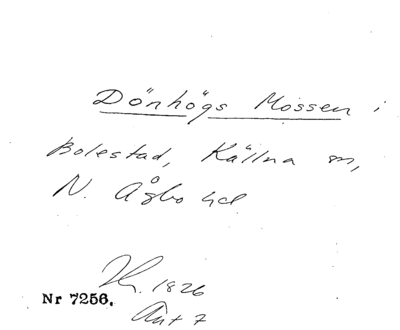 Dönhögs Mossen i
Bolestad, Källna sn,
N. Åsbo hd
1826
Nr 7256.
Akt 7